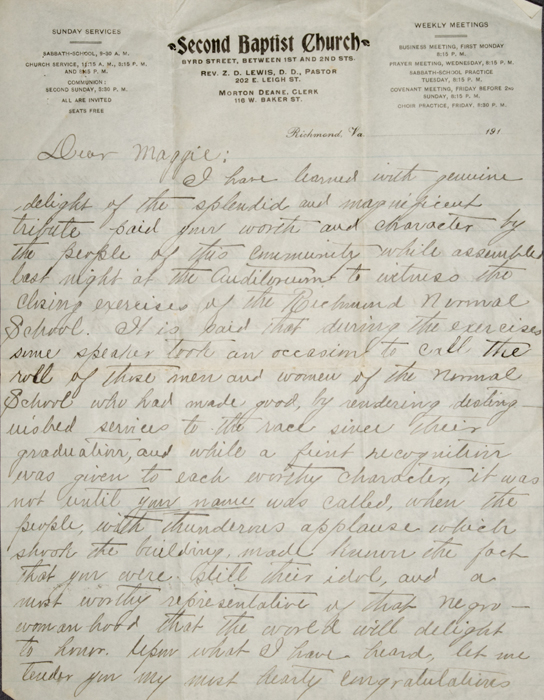 SUNDAY SERVICES
SABBATH-SCHOOL, 9:30 A. M.
CHURCH SERVICE, 11:15 A. M., 3:15 P. M.
AND 8:15 P. M.
COMMUNION:
SECOND SUNDAY, 3:30 P. M.
ALL ARE INVITED
SEATS FREE
Second Baptist Church
BYRD STREET, BETWEEN 1ST AND 2ND STS.
REV. Z. D. LEWIS, D. D., PASTOR
202 E. LEIGH ST.
MORTON DEANE, CLERK
116 W. BAKER ST.
WEEKLY MEETINGS
BUSINESS MEETING, FIRST MONDAY
8:15 P. M.
PRAYER MEETING, WEDNESDAY, 8:15 P. M.
SABBATH-SCHOOL PRACTICE
TUESDAY, 8:15 P. M.
COVENANT MEETING, FRIDAY BEFORE 2ND
SUNDAY, 8:15 P. M.
CHOIR PRACTICE, FRIDAY, 8:30 P. M.
Richmond, Va. 191
Dear Maggie:
I have learned with genuine
delight of the splendid and magnificent
tribute paid your worth and character by
the people of this community while assembled
last night at the Auditorium to witness the
closing exercises of the Richmond Normal
School. It is said that during the exercises
some speaker took an occasion to call the
roll of those men and women of the Normal
School who had made good, by rendering disting-
uished services to the race since their
graduation, and while a feint recognition
was given to each worthy character, it was
not until your name was called, when the
people, with thunderous applause which
shook the building, made known the fact
that you were still their idol, and a
most worthy representative of that Negro-
womanhood that the world will delight
to honor. Upon what I have heard, let me
tender you my most hearty congratulations